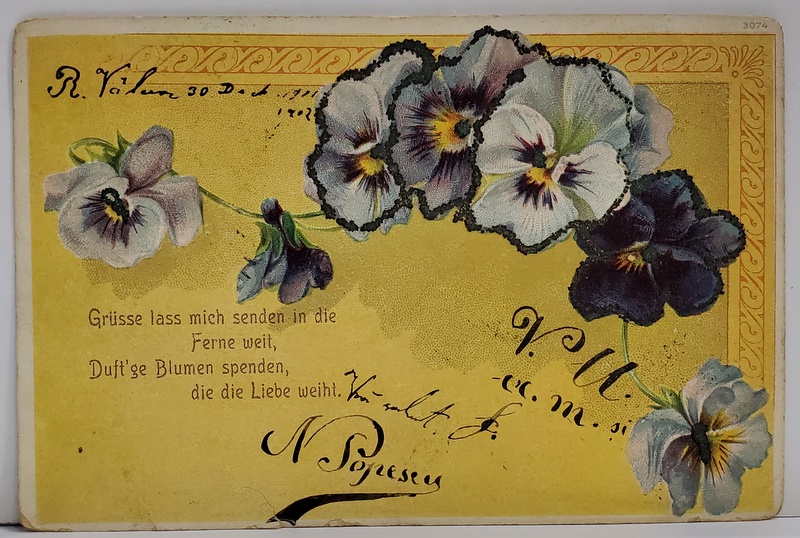 3074
R. Vâlcea 30 Dec
Grüsse lass mich senden in die
Ferne weit,
Duft'ge Blumen spenden,
die die Liebe weiht.
N Popescu